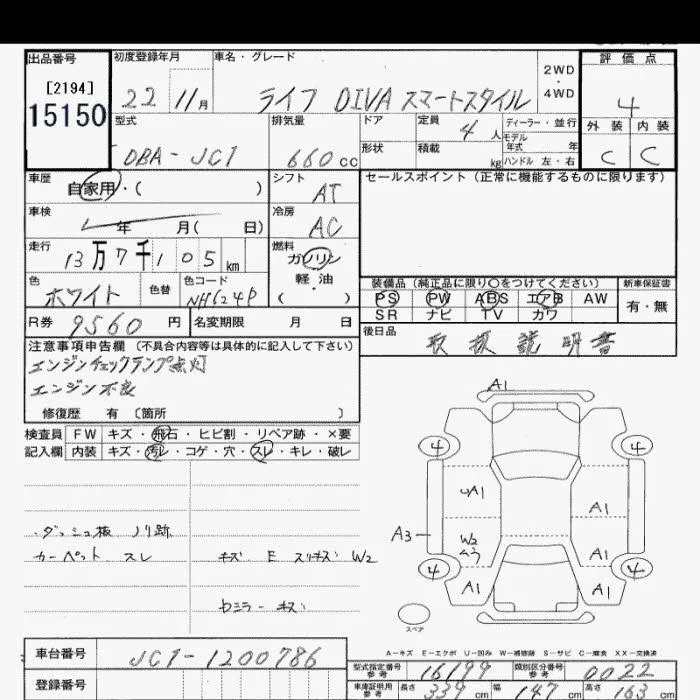 出品番号 初度登録年月 車名・グレード 評価点
[2194]
15150
22 11月 ライフ DIVA スマートスタイル
2WD・4WD
4
型式 DBA-JC1
排気量 660cc
ドア 形状
定員 4人
積載 kg
ディーラー・並行
モデル年式 年
ハンドル 左・右
外装 内装
C C
車歴 自家用・( )
シフト AT
セールスポイント(正常に機能するものに限ります)
車検 年 月( 日)
冷房 AC
走行 13万7千105km
燃料 ガソリン 軽・油 ( )
色 ホワイト 色替 色コード NH624P
装備品(純正品に限り○をつけてください) 新車保証書
PS PW ABS エアB AW
SR ナビ TV カワ
有・無
R券 9560円 名変期限 月 日
後日品 取扱説明書
注意事項申告欄(不具合内容等は具体的に記入して下さい)
エンジンチェックランプ点灯
エンジン不良
修復歴 有 〔箇所 〕
検査員 FW キズ・飛石・ヒビ割・リペア跡・×要
記入欄 内装 キズ・汚レ・コゲ・穴・スレ・キレ・破レ
・ダッシュ板 ノリ跡
カーペット スレ
キズ E スリキズ W2
Dミラー キズ
A1
4 4
A1 A1
A3
W2
A1
4 4
A1 A1
スペア
A-キズ E-エクボ U-凹み W-補修跡 S-サビ C-腐食 XX-交換済
車台番号 JC1-1200786
登録番号
型式指定番号 参考 16199 類別区分番号 参考 0022
車庫証明用 参考 長さ 339cm 幅 147cm 高さ 163cm